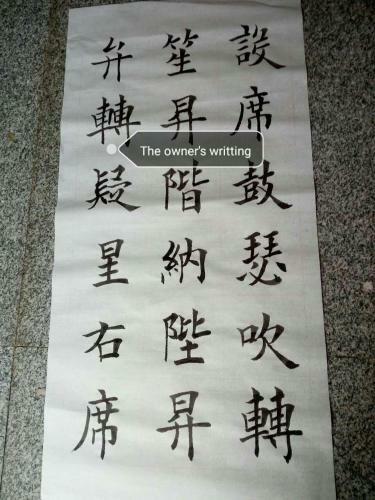 設席鼓瑟吹轉
笙昇階納陛昇
弁轉疑星右席
The owner's writting